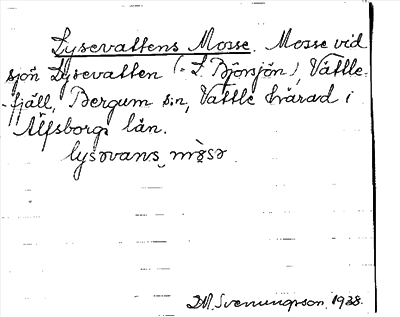 Lysevattens Mosse. Mosse vid
sjön Lysevatten (= L. Björsjön), Vättle-
fjäll, Bergum sn, Vättle härad i
Älfsborgs län.
lysəvans mo̖sə
D.M. Svenungsson. 1928.